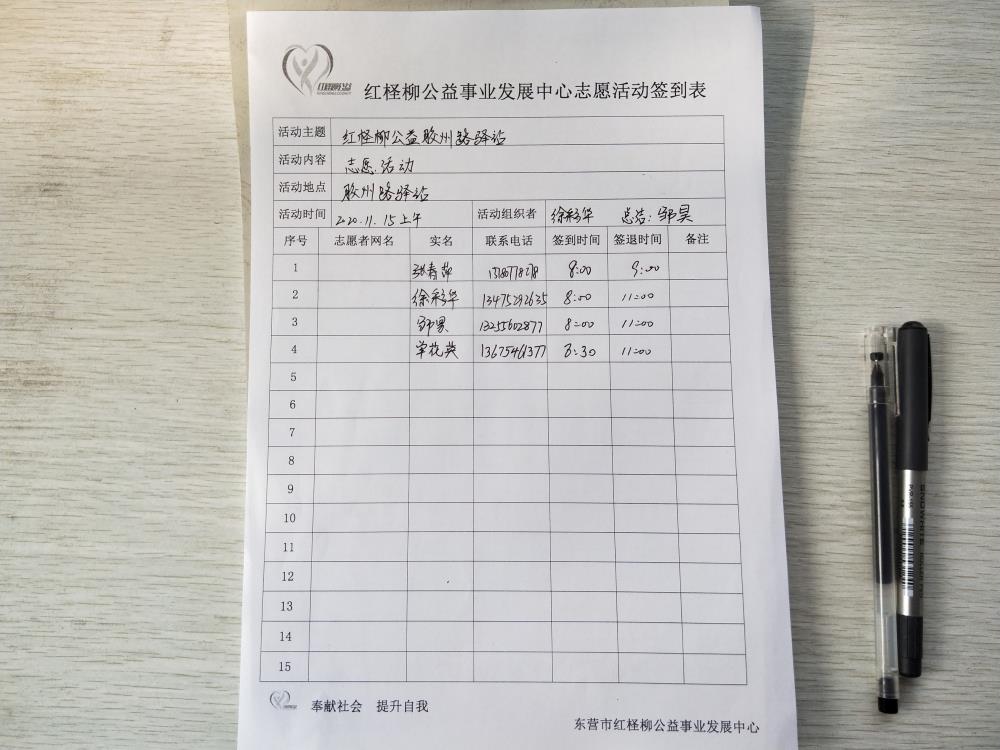 红柽柳公益
红柽柳公益事业发展中心志愿活动签到表
活动主题 红柽柳公益胶州路驿站
活动内容 志愿活动
活动地点 胶州路驿站
活动时间 2020.11.15上午 活动组织者 徐彩华 总结：邹昊
序号 志愿者网名 实名 联系电话 签到时间 签退时间 备注
1 张春萍 8:00 9:00
2 徐彩华 13475292635 8:00 11:00
3 邹昊 13255602877 8:00 11:00
4 单花英 13675461377 8:30 11:00
5
6
7
8
9
10
11
12
13
14
15
奉献社会 提升自我
东营市红柽柳公益事业发展中心
SNOWHITE